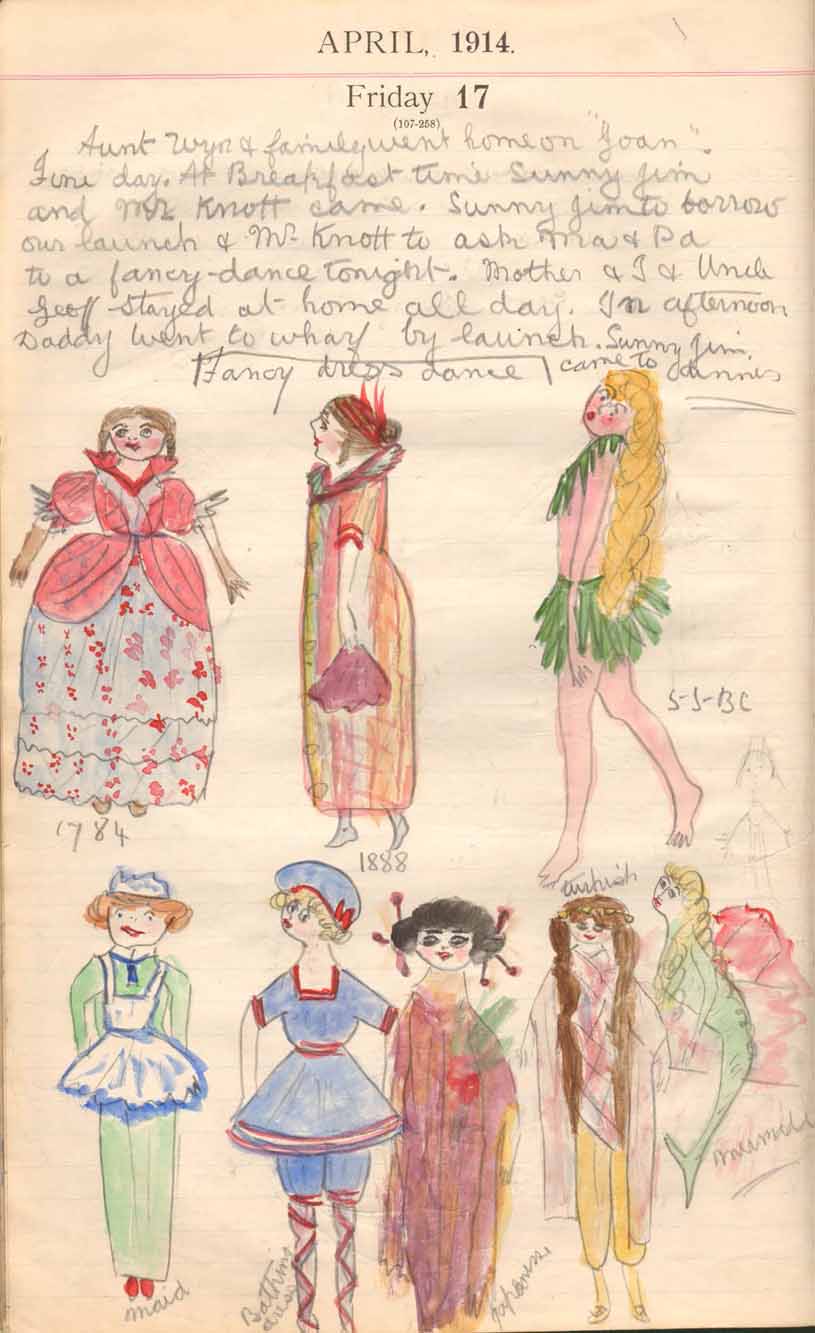 APRIL, 1914.
Friday 17
(107-258)
Aunt Wyn & family went home on "Joan".
Fine day. At Breakfast time Sunny Jim
and Mr Knott came. Sunny Jim to borrow
our launch & Mr Knott to ask Ma & Pa
to a fancy-dance tonight. Mother & I & Uncle
Geoff stayed at home all day. In afternoon
Daddy went to wharf by launch. Sunny Jim
came to dinner
Fancy dress dance
1784
1888
5-5-BC
maid
Bathing dress
Japanese
turkish
mermaid